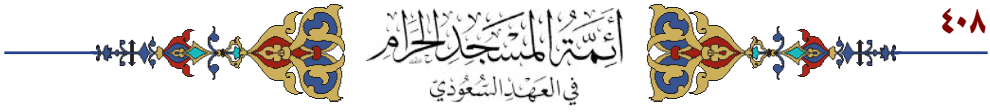 ٤٠٨
أئمة المسجد الحرام
في العهد السعودي